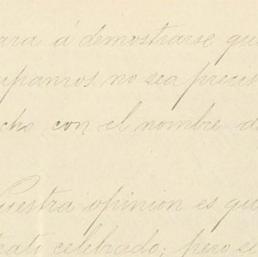 ara á demostrarse que
upamos no sea precis
cho con el nombre d
Nuestra opinion es qu
trato celebrado; pero s